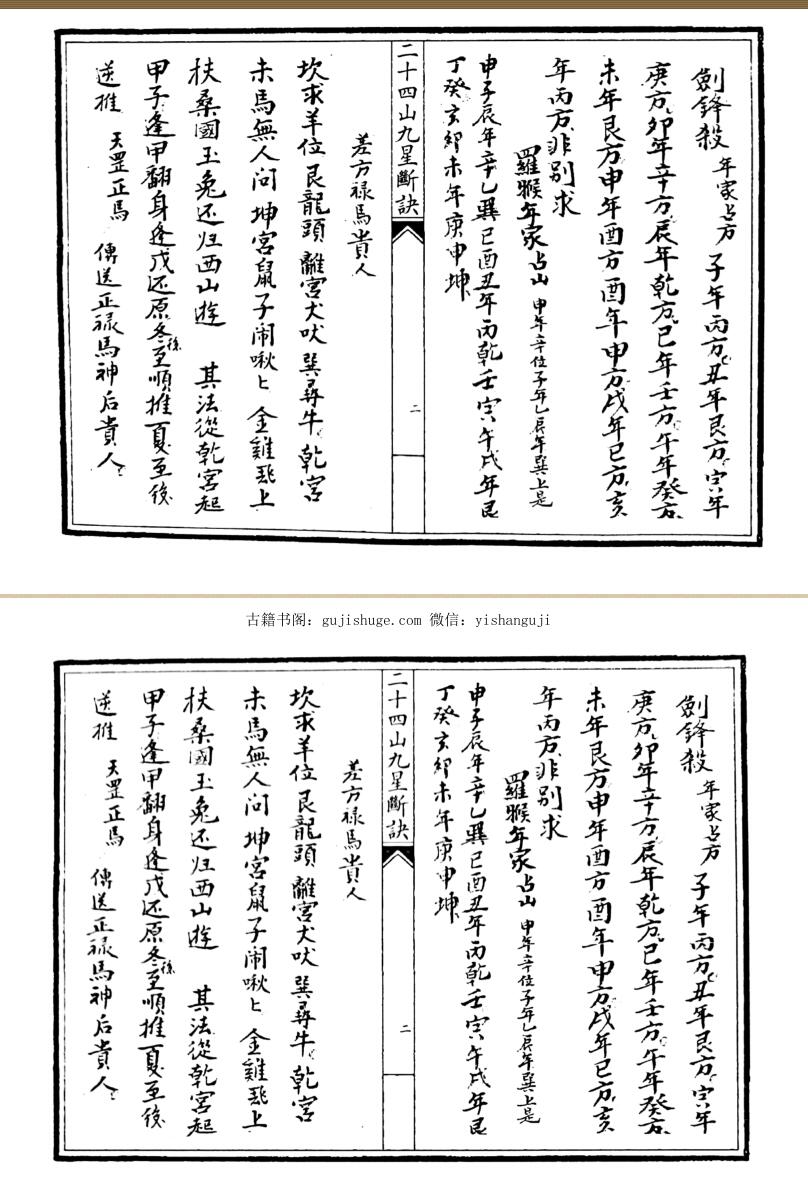 劍鋒殺 年家占方 子年丙方丑年艮方寅年
庚方卯年辛方辰年乾方巳年壬方午年癸方
未年艮方申年酉方酉年申方戌年巳方亥
年丙方非別求
羅猴年家占山 申年辛位子年乙辰年巽上是
申子辰年辛乙巽巳酉丑年丙乾壬寅午戌年艮
丁癸亥卯未年庚申坤
二十四山九星斷訣
二
差方禄馬貴人
坎求羊位艮龍頭離宮犬吠巽尋牛乾宮
未馬無人问坤宮鼠子闹啾匕金雞飛上
扶桑國玉兔还归西山遊 其法從乾宮起
甲子逢甲翻身逢戊还原冬至後順推夏至後
逆推 天罡正馬 傳送正禄馬神后貴人
古籍书阁：gujishuge.com 微信：yishanguji
劍鋒殺 年家占方 子年丙方丑年艮方寅年
庚方卯年辛方辰年乾方巳年壬方午年癸方
未年艮方申年酉方酉年申方戌年巳方亥
年丙方非別求
羅猴年家占山 申年辛位子年乙辰年巽上是
申子辰年辛乙巽巳酉丑年丙乾壬寅午戌年艮
丁癸亥卯未年庚申坤
二十四山九星斷訣
二
差方禄馬貴人
坎求羊位艮龍頭離宮犬吠巽尋牛乾宮
未馬無人问坤宮鼠子闹啾匕金雞飛上
扶桑國玉兔还归西山遊 其法從乾宮起
甲子逢甲翻身逢戊还原冬至後順推夏至後
逆推 天罡正馬 傳送正禄馬神后貴人